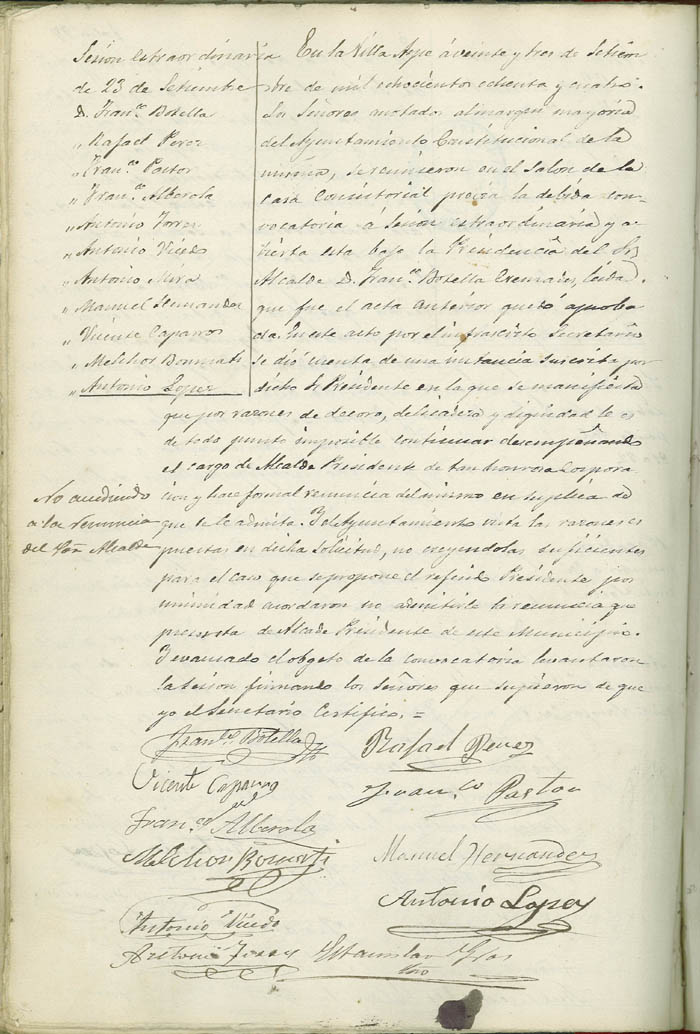 Sesion estraordinaria
de 23 de Setiembre
D. Fran.co Botella
" Rafael Perez
" Fran.co Pastor
" Fran.co Alberola
" Antonio Torres
" Antonio Vicedo
" Antonio Mira
" Manuel Hernandez
" Vicente Caparros
" Melchor Bonmati
" Antonio Lopez
En la Villa Aspe á veinte y tres de Setiem
bre de mil ochocientos ochenta y cuatro.
Los Señores anotados al margen mayoria
del Ayuntamiento Constitucional de la
misma, se reunieron en el Salon de la
Casa Consistorial previa la debida con
vocatoria á Sesion estraordinaria y a
bierta esta bajo la Presidencia del Sr
Alcalde D. Fran.co Botella Cremades, leida
que fue el acta anterior quedó aproba
da. En este acto por el infrascrito Secretario
se dió cuenta de una instancia suscrita por
dicho Sr Presidente en la que se manifiesta
que por razones de decoro, delicadeza y dignidad le es
de todo punto imposible continuar desempeñando
el cargo de Alcalde Presidente de tan honrosa Corpora
cion y hace formal renuncia del mismo en suplica de
que se le admita. Y el Ayuntamiento vista las razones es
puestas en dicha solicitud, no creyendolas suficientes
para el caso que se propone el referido Presidente por
unimidad acordaron no admitirle la renuncia que
presenta de Alcalde Presidente de este Municipio.
Y evacuado el obgeto de la convocatoria levantaron
la sesion firmando los Señores que supieron de que
yo el Secretario Certifico. =
No accediendo
a la renuncia
del Sor Alcalde
Fran.co Botella
Rafael Perez
Vicente Caparros
Fran.co Pastor
Fran.co Alberola
Melchor Bonmati
Manuel Hernandez
Antonio Lopez
Antonio Vicedo
Antonio Torres
Estanislao Gras
Srio